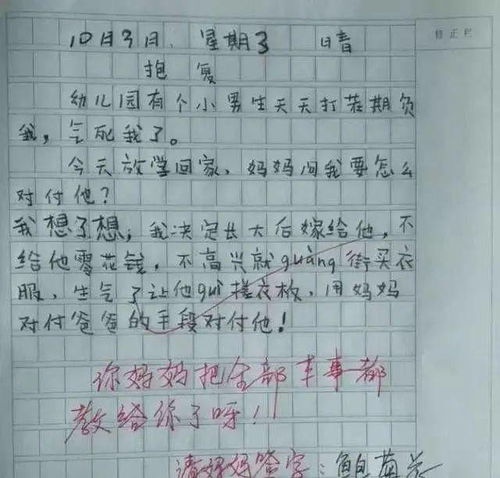 10月3日. 星期3 日青
修正栏
抱复
幼儿园有个小男生天天打茬期负
我，气死我了。
今天放学回家，妈妈问我要怎么
对付他？
我想了想，我决定长大后嫁给他，不
给他零花钱，不高兴就guàng街买衣
服，生气了让他guì搓衣板，用妈妈
对付爸爸的手段对付他！
你妈妈把全部本事都
教给你了呀！
请妈妈签字：鲍